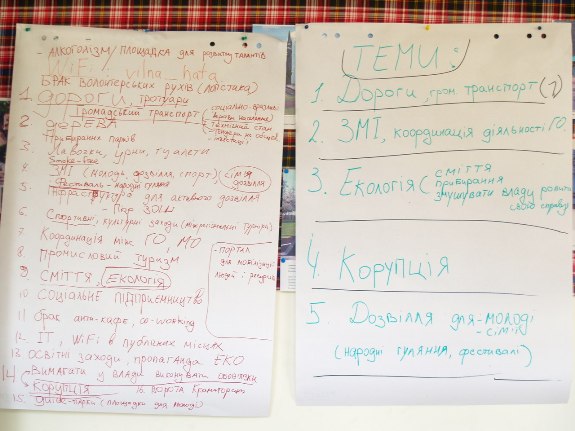 - АЛКОГОЛІЗМ/ПЛОЩАДКА для розвитку талантів
WiFi vilna_hata
БРАК ВОЛОНТЕРСЬКИХ РУХІВ (логістика)
1. ДОРОГИ, тротуари
Громадський транспорт
соціально-вразливі
Технічний стан
2. ДЕРЕВА
Прибирання парків
3. Лавочки, урни, туалети
Smoke-free
4. ЗМІ (молодь, дозвілля, спорт) сім'я дозвілля
Фестиваль - народні гуляння
5. Інфраструктура для активного дозвілля
6. Спортивні, культурні заходи
7. Координація між ГО, МО
8. Промисловий туризм
- ПОРТАЛ
для мобілізації
людей і ресурсів
9 СМІТТЯ, ЕКОЛОГІЯ
10 СОЦІАЛЬНЕ ПІДПРИЄМНИЦТВО
11 брак анти-кафе, co-working
12. ІТ, WiFi в публічних місцях
13. ОСВІТНІ ЗАХОДИ, пропаганда ЕКО
14 Вимагати у влади виконувати обов'язки
Корупція 16. ВОРОТА Краматорська
15. guide-парки (площадки для молоді)
ТЕМИ:
1. Дороги, гром. транспорт (1)
2. ЗМІ, координація діяльності ГО
3. Екологія (сміття
прибирання
змушувати владу робити
свою справу
4. Корупція
5. Дозвілля для - молоді
- сім'ї
(народні гуляння, фестивалі)